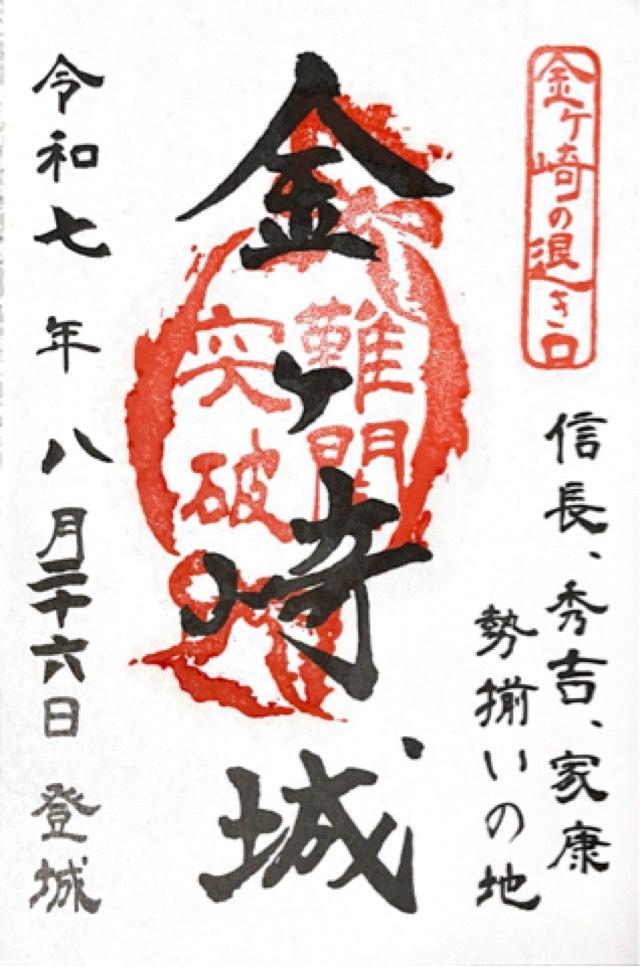 金ヶ崎の退き口
信長、秀吉、家康
勢揃いの地
金ヶ崎城
難関
突破
令和七年八月二十六日 登城